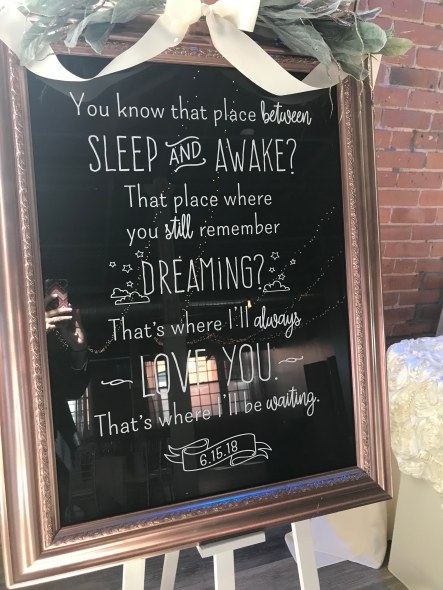 You know that place between
SLEEP AND AWAKE?
That place where
you still remember
DREAMING?
That's where I'll always
LOVE YOU.
That's where I'll be waiting.
6.15.18